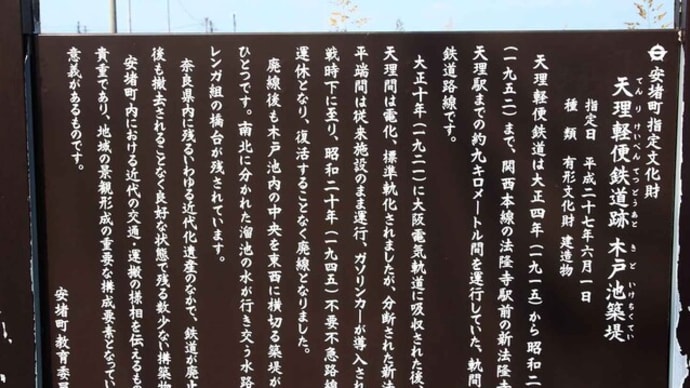 安堵町指定文化財
てんりけいべんてつどうあと きどいけちくてい
天理軽便鉄道跡 木戸池築堤
指定日 平成二十七年六月一日
種類 有形文化財 建造物
天理軽便鉄道は大正四年（一九一五）から昭和二
（一九五二）まで、関西本線の法隆寺駅前の新法隆寺
天理駅までの約九キロメートル間を運行していた、軌間
鉄道路線です。
大正十年（一九二一）に大阪電気軌道に吸収された後、
天理間は電化、標準軌化されましたが、分断された新法
平端間は従来施設のまま運行、ガソリンカーが導入され
戦時下に至り、昭和二十年（一九四五）不要不急路線
運休となり、復活することなく廃線となりました。
廃線後も木戸池内の中央を東西に横切る築堤が
ひとつです。南北に分かれた溜池の水が行き交う水路
レンガ組の橋台が残されています。
奈良県内に残るいわゆる近代化遺産のなかで、鉄道が廃止
後も撤去されることなく良好な状態で残る数少ない構築物
安堵町内における近代の交通・運搬の様相を伝えるもの
貴重であり、地域の景観形成の重要な構成要素となってい
意義があるものです。
安堵町教育委員